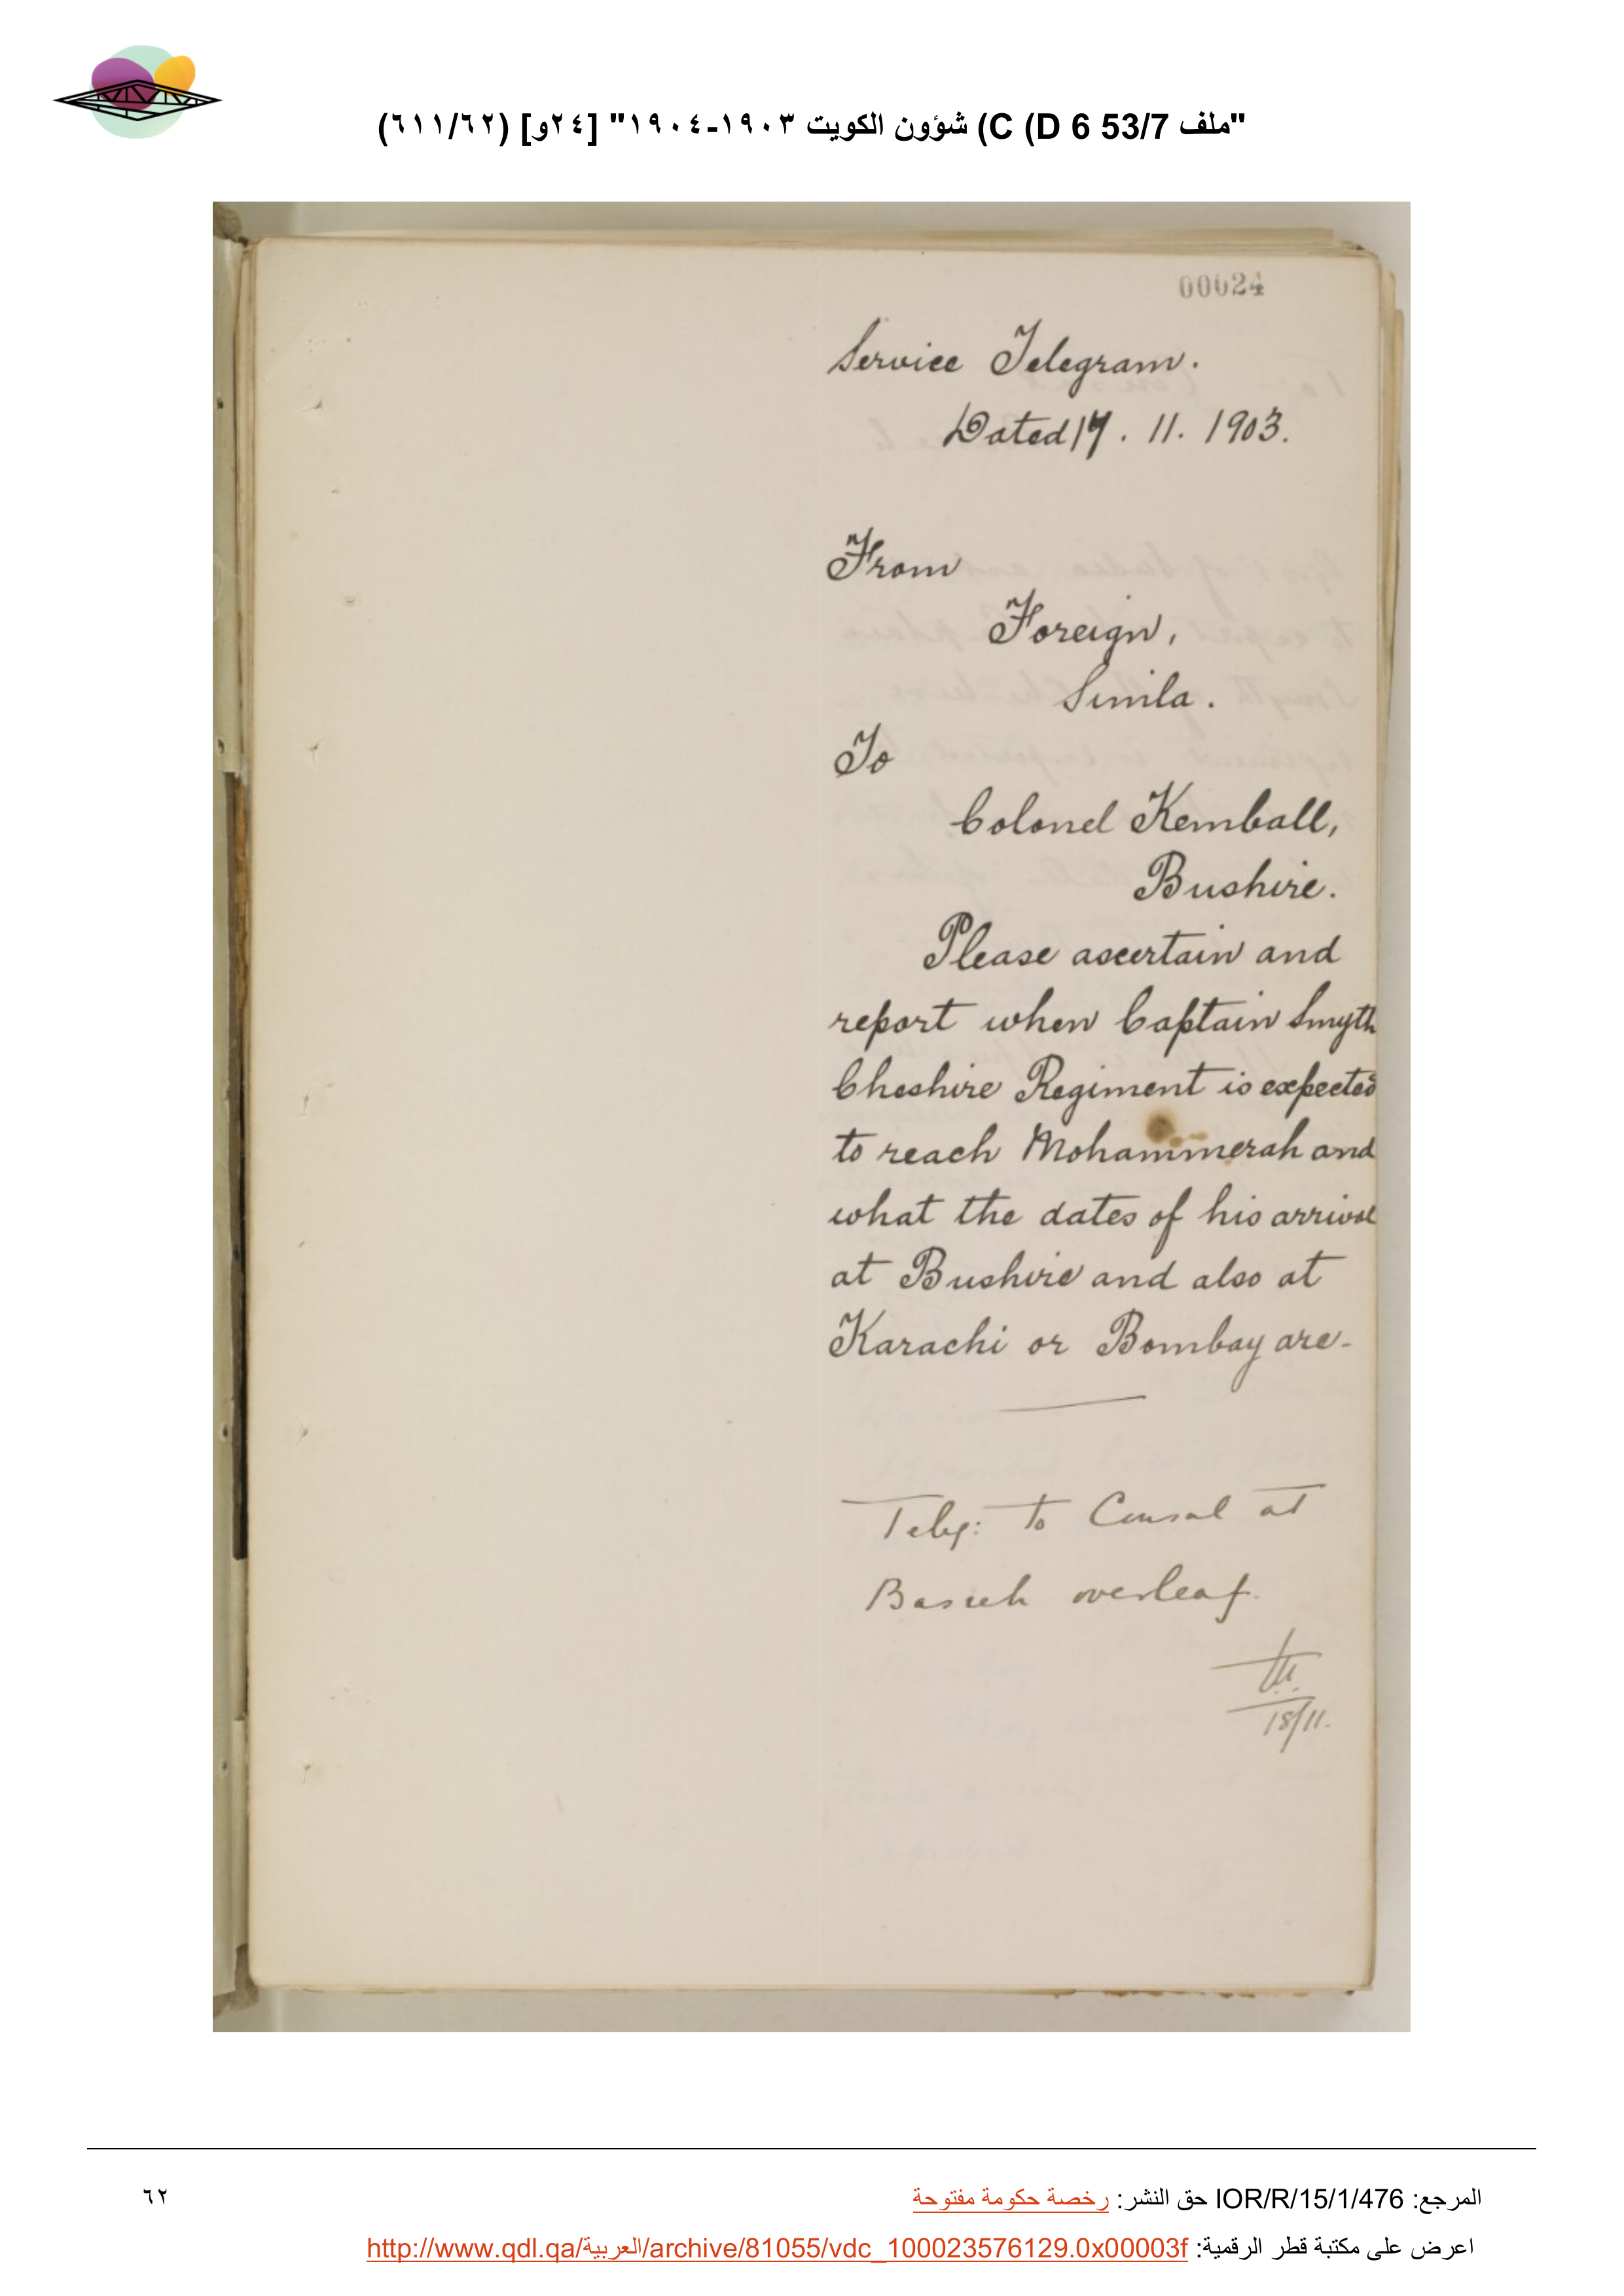 "ملف 53/7 D 6) C) شؤون الكويت ١٩٠٣-١٩٠٤" [٢٤و] (٦١١/٦٢)
00024
Service Telegram.
Dated 17. 11. 1903.
From
Foreign,
Simla.
To
Colonel Kemball,
Bushire.
Please ascertain and
report when Captain Smyth
Cheshire Regiment is expected
to reach Mohammerah and
what the dates of his arrival
at Bushire and also at
Karachi or Bombay are-
Teleg: to Consul at
Basreh overleaf.
18/11.
المرجع: IOR/R/15/1/476 حق النشر: رخصة حكومة مفتوحة
٦٢
اعرض على مكتبة قطر الرقمية: http://www.qdl.qa/العربية/archive/81055/vdc_100023576129.0x00003f